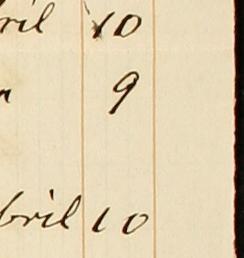 ril 10
9
bril 10